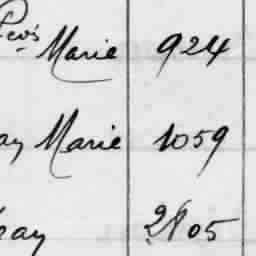 Marie 924
ay Marie 1059
ay 2805